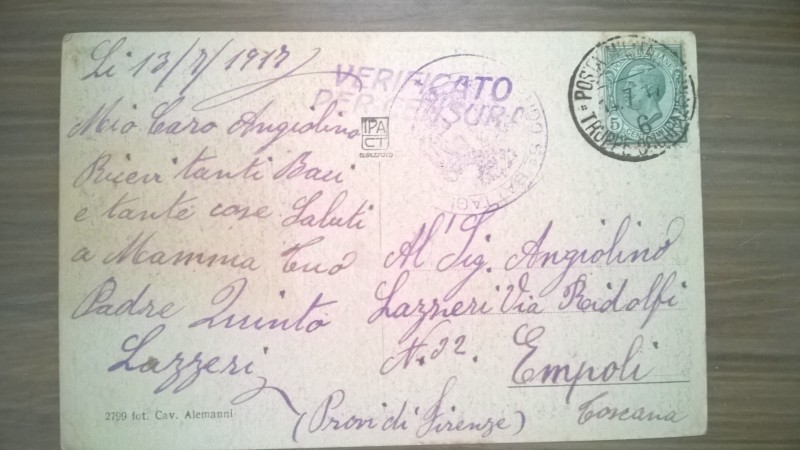 Li 13/7/1917
Mio Caro Angiolino
Ricevi tanti Baci
e tante cose Saluti
a Mamma tuo
Padre Quinto
Lazzeri
2799 fot. Cav. Alemanni
VERIFICATO
PER CENSURA
IPA
CT
POSTA MILITA
TRUPPE
6
Al Sig. Angiolino
Lazzeri Via Ridolfi
N. 32.
Empoli
(Provi di Firenze)
Toscana